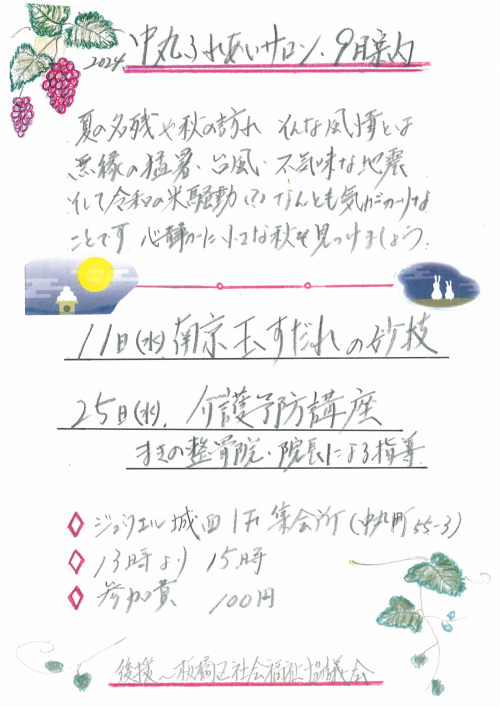 2024 中丸ふれあいサロン・9月案内
夏の名残や秋の訪れ そんな風情とは
無縁の猛暑・台風・不気味な地震
そして令和の米騒動(?)なんとも気がかりな
ことです 心静かに小さな秋を見つけましょう。
11日(水)南京玉すだれの妙技
25日(水). 介護予防講座
まきの整骨院・院長による指導
城西1F 集会所(中丸町55-3)
13時より 15時
参加費 100円
後援〜板橋区社会福祉協議会